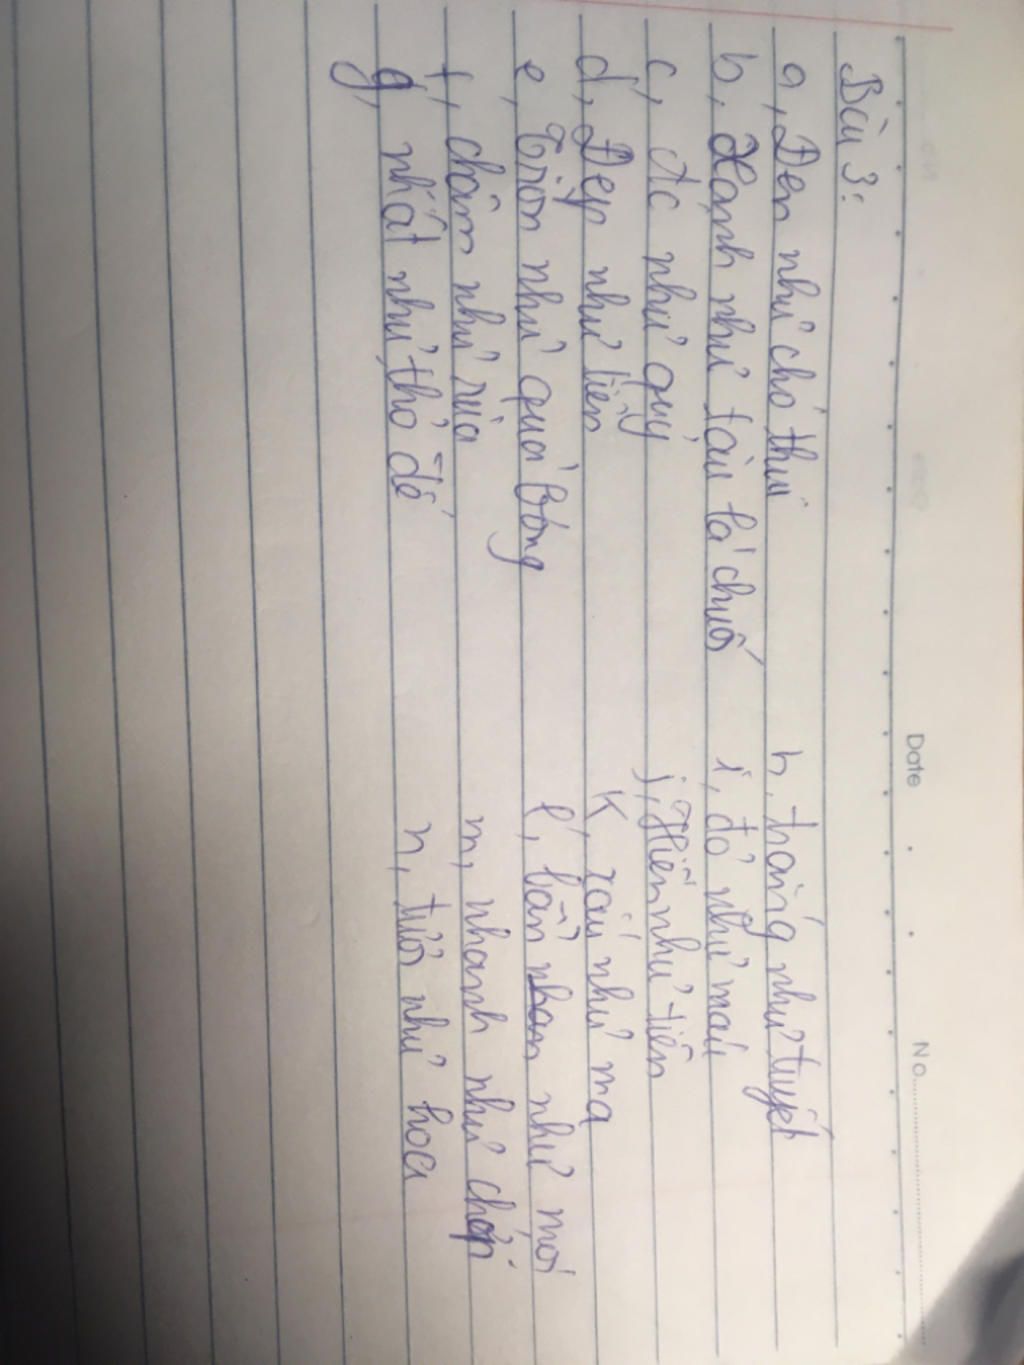 Date No
Bài 3:
a, Đen như chó thui
h, trắng như tuyết
b, Xanh như tàu lá chuối
i, đỏ như máu
c, Ác như quỷ
j, Hiền như tiên
d, Đẹp như tiên
k, xấu như ma
e, Tròn như quả bóng
l, bẩn như mọi
f, chậm như rùa
m, nhanh như chớp
g, nhát như thỏ đế
n, tươi như hoa